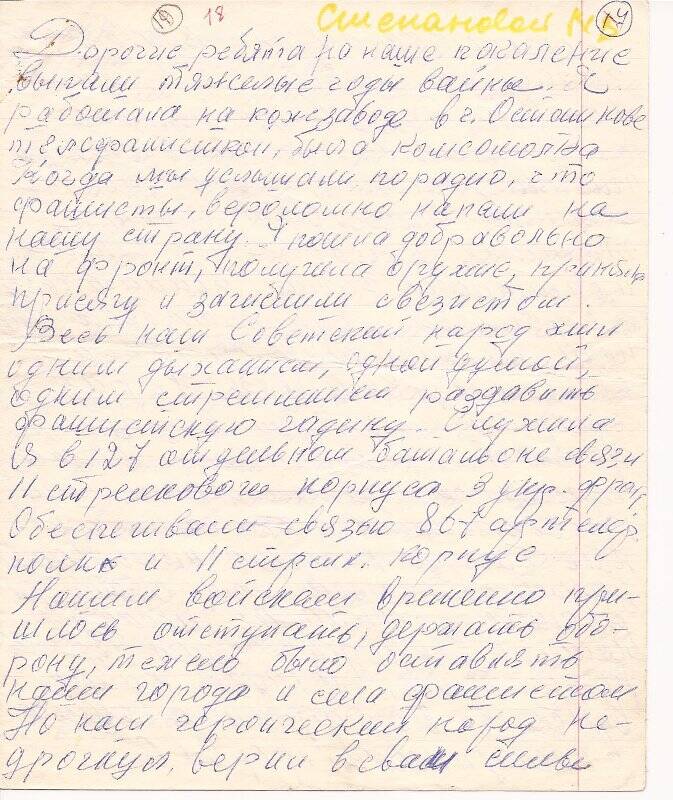 19 18 Степановой М.В 14
Дорогие ребята на наше покаление
выпали тяжелые годы вайны. Я
работала на кожзаводе в г. Осташкове
телефанисткой, была комсомолка
Когда мы услышали порадио, что
фашисты, вероломно напали на
нашу страну. Я пошла добравольно
на фронт, получила оружие, приняла
присягу и зачислили связистом.
Весь наш Советский народ жил
одним дыханием, одной думой,
одним стремлением раздавить
фашистскую гадину. Служила
я в 127 отдельном баталъоне связи
11 стрелкового корпуса 3 укр. фрон,
Обеспечивали связью 867 артилер
полк и 11 стрелк. корпус
Нашим войскам временно при-
шлось отступать, держать обо-
рону, тежело было оставлять
наши города и села фашистам
Но наш героический народ не-
дрогнул, верил в сваи силы